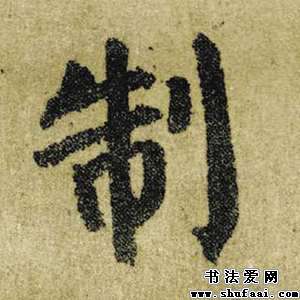 制
书法爱网
www.shufaai.com